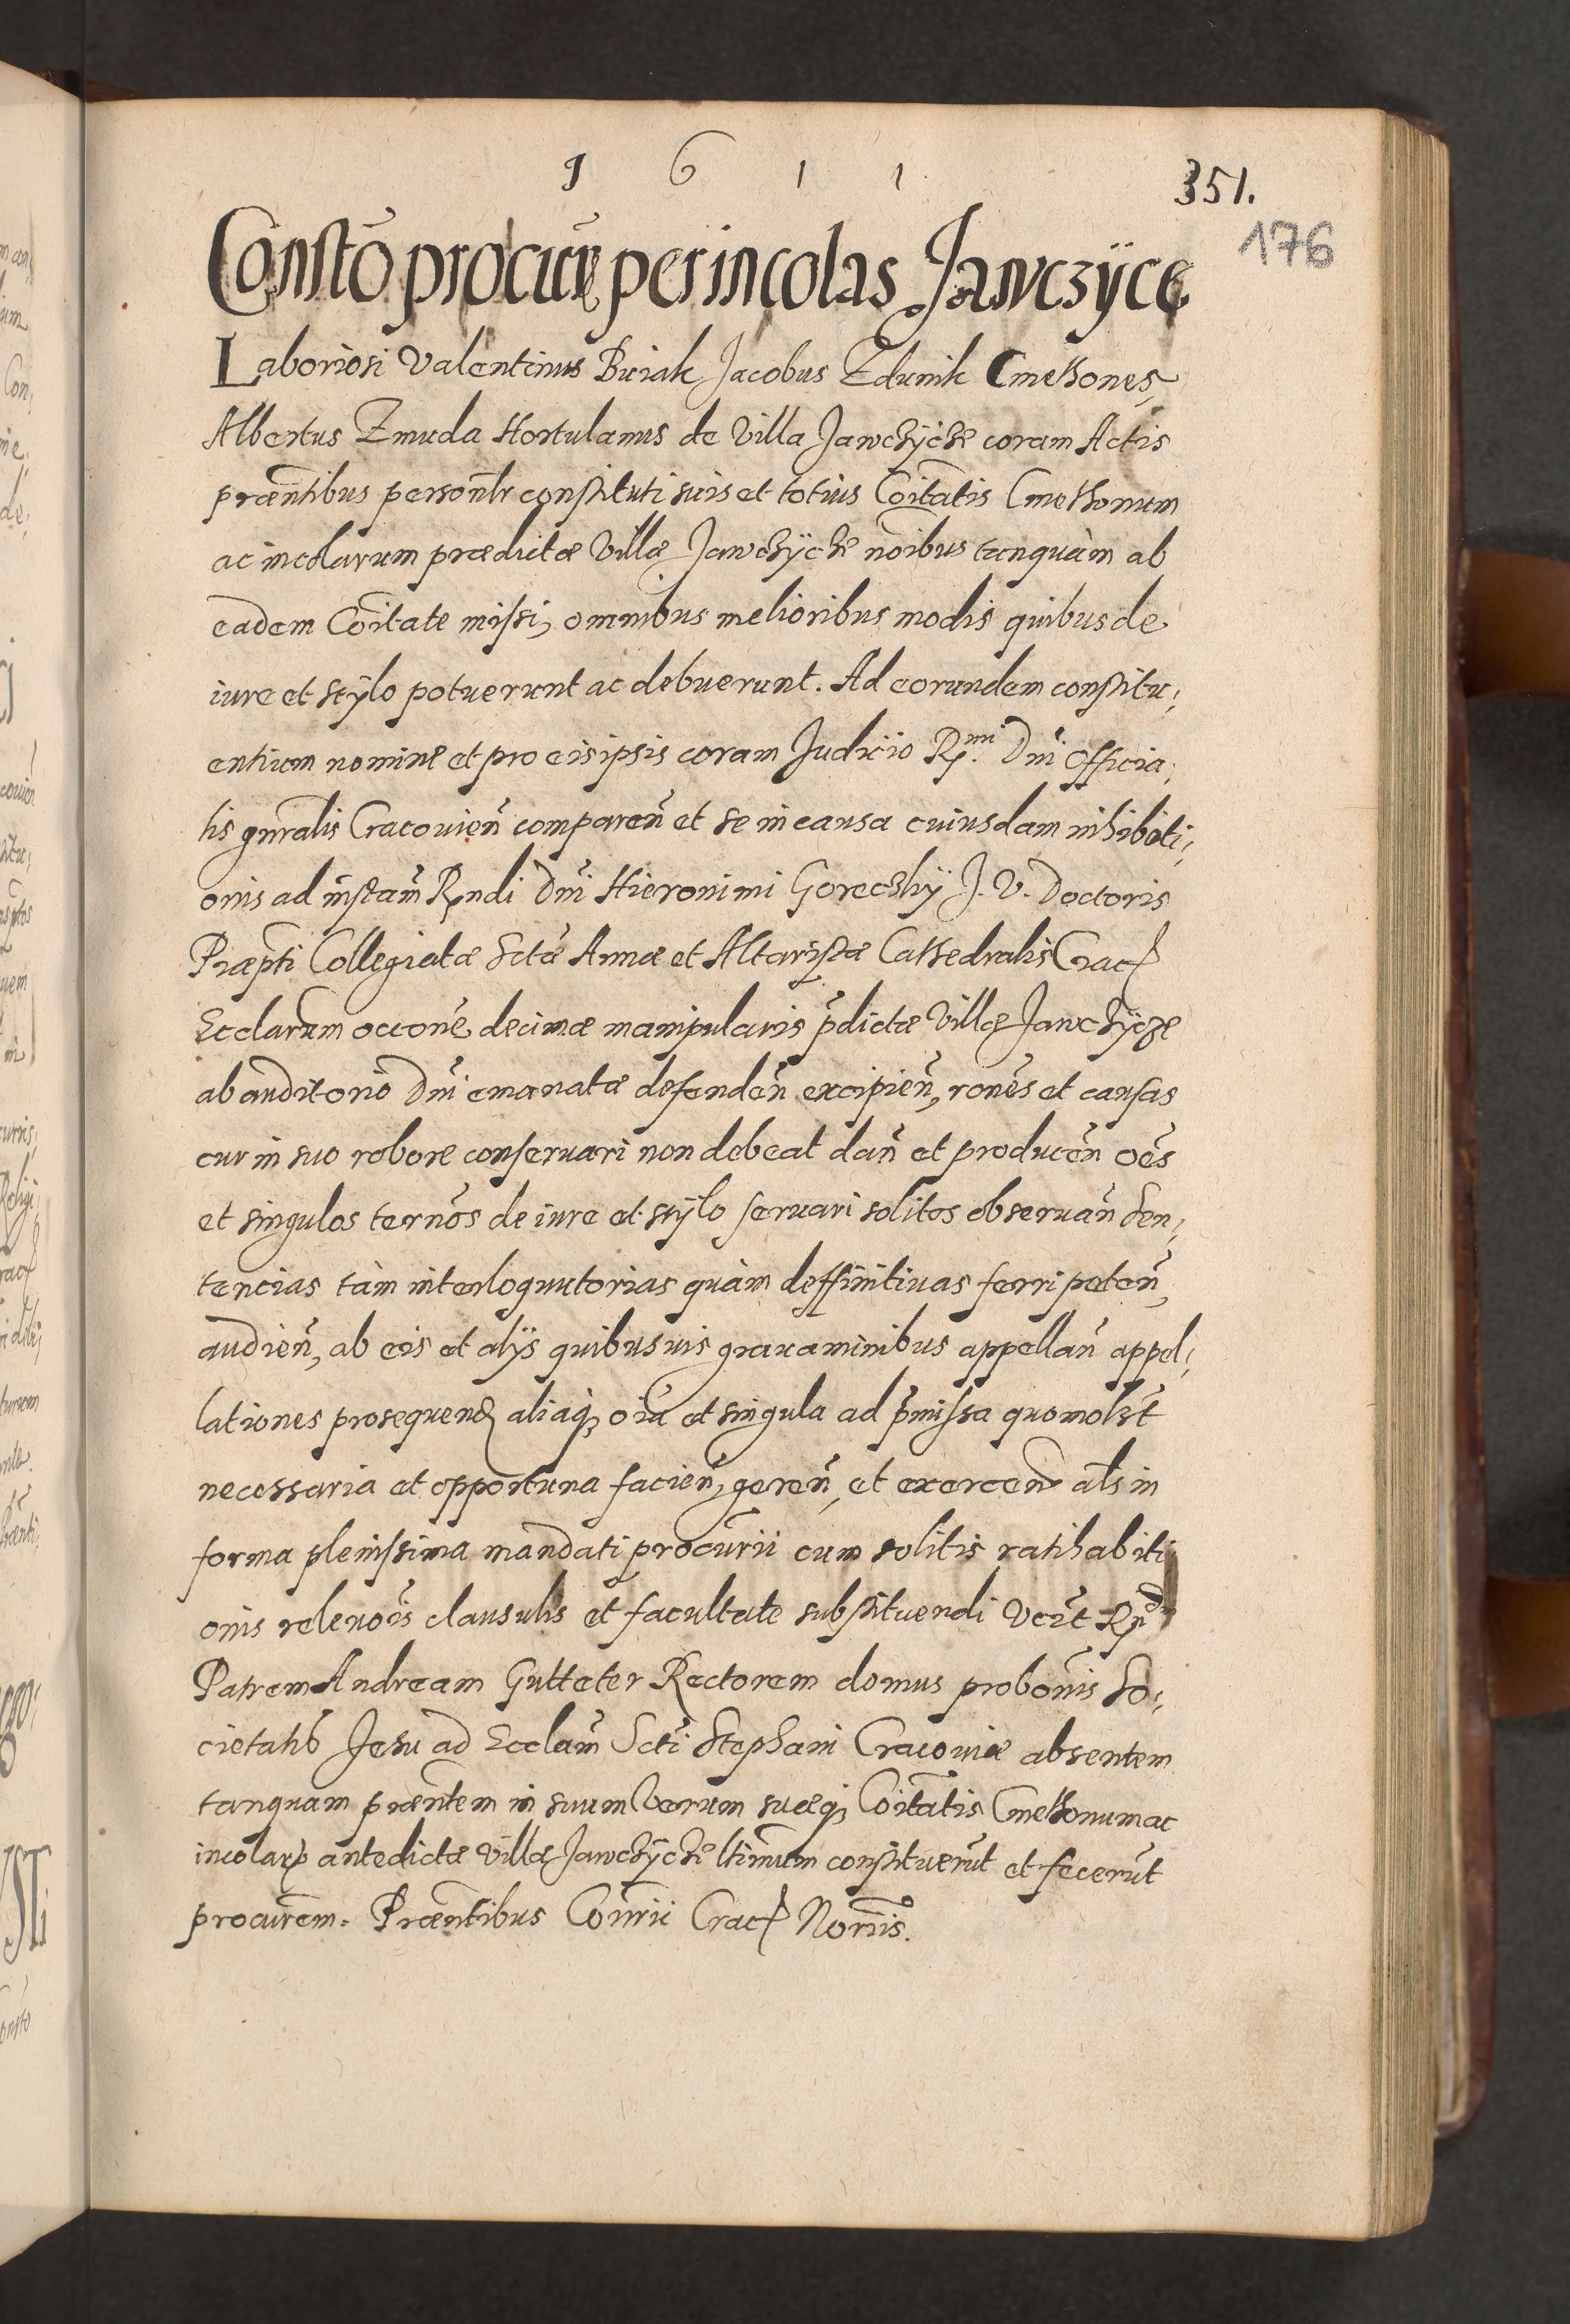 1 6 1 1
351.
176
Constō procur̃ per incolas Jawczÿce
Laboriosi Valentinus Buiak, Jacobus Zdunik Cmethones,
Albertus Zmuda Hortulanus de Villa Jawczÿcze coram Actis
præñtibus personlr̃ constituti suis et totius Coĩtatis Cmethonum
ac incolarum prædictæ Villæ Jawczÿcze noĩbus tanquàm ab
eadem Coĩtate missi, omnibus melioribus modis quibus de
iure et stÿlo potuerunt ac debuerunt. Ad eorundem constitu¸
entium nomine et pro eis ipsis coram Judicio R. mi Dñi Officia¸
lis gñralis Cracouieñ compareñ et se in causa cuiusdam inhibiti¸
onis ad instam̃ Rñdi Dñi Hieronimi Goreczkÿ J. V. Doctoris
Præpti Collegiatæ Sctæ̃ Annæ et Altaristæ Cathedralis Crac
Ecclarũm occone decimæ manipularis p̃dictæ Villæ Jawczÿcze
ab auditorio Dñi emanatæ defendeñ excipieñ, rones et causas
cur in suo robore conseruari non debeat dañ et produceñ oẽs
et singulos ternõs de iure et stÿlo seruari solitos obseruañ Sen¸
tencias tàm interloquutorias quàm deffinitiuas ferri peteñ,
audieñ, ab eis et alÿs quibusuis grauaminibus appellañ appel¸
lationes prosequend aliaq; oĩa et singula ad p̃missa quomolbt
necessaria et opportuna facieñ, gereñ, et exerceñ als in
forma plenissima mandati procurii cum solitis ratihabiti
onis releuoĩs clausulis et facultate substituendi Vcit Rñd
Patrem Andream Gutteter Rectorem domus probonis So¸
cietatis Jesu ad Ecclam̃ Scti Stephani Cracouiæ absentem
tanquam præntem in suum Verum suæq; Coĩtatis Cmethonum ac
incolar antedictæ Villæ Jawczÿcze ltimum constituerũt et fecerũt
procurem. Præntibus Consrii Crac Noriis.